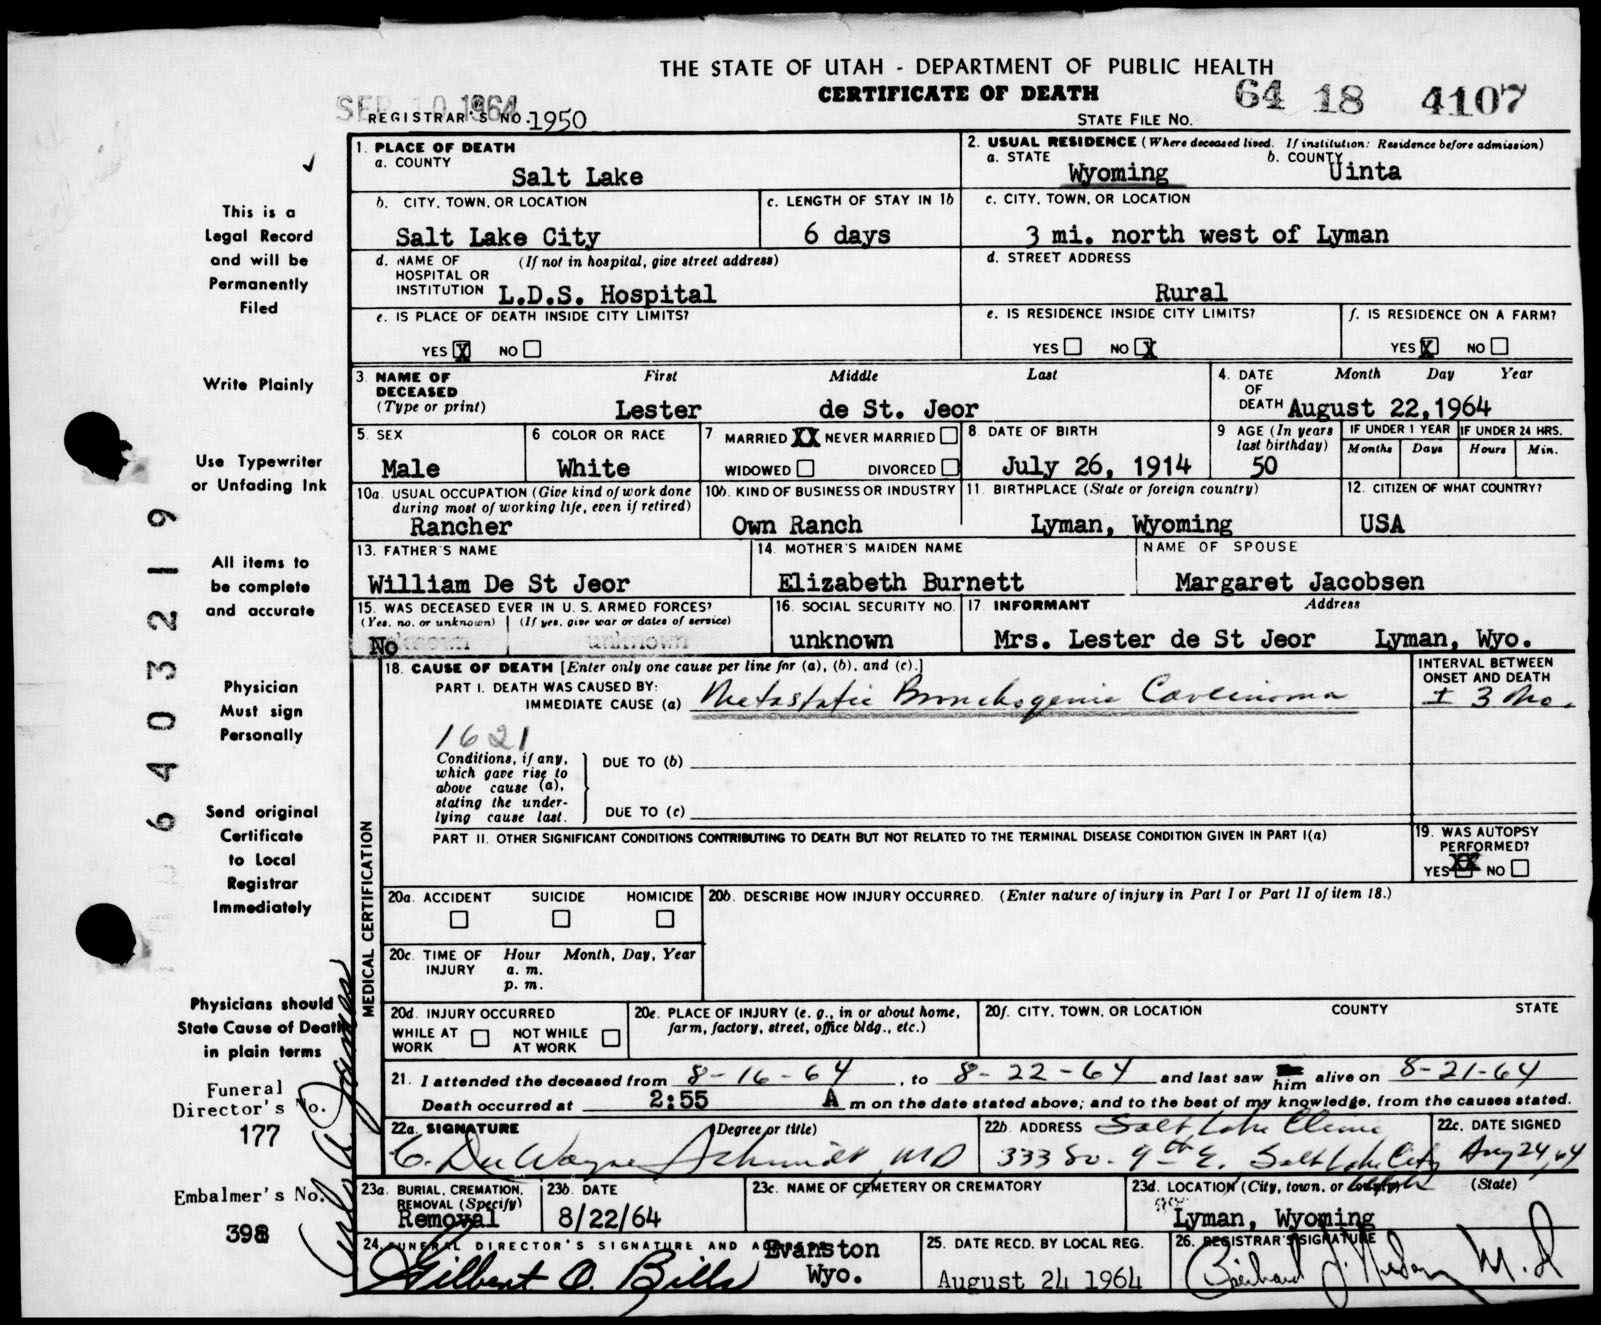 THE STATE OF UTAH - DEPARTMENT OF PUBLIC HEALTH
CERTIFICATE OF DEATH
SEP 10 1964
REGISTRAR'S NO. 1950
STATE FILE NO. 64 18 4107
This is a
Legal Record
and will be
Permanently
Filed
Write Plainly
Use Typewriter
or Unfading Ink
All items to
be complete
and accurate
Physician
Must sign
Personally
Send original
Certificate
to Local
Registrar
Immediately
Physicians should
State Cause of Death
in plain terms
Funeral
Director's No.
177
Embalmer's No.
398
64032 19
1. PLACE OF DEATH
a. COUNTY
Salt Lake
2. USUAL RESIDENCE (Where deceased lived. If institution: Residence before admission)
a. STATE Wyoming b. COUNTY Uinta
b. CITY, TOWN, OR LOCATION
Salt Lake City
c. LENGTH OF STAY IN 1b
6 days
c. CITY, TOWN, OR LOCATION
3 mi. north west of Lyman
d. NAME OF (If not in hospital, give street address)
HOSPITAL OR
INSTITUTION L.D.S. Hospital
d. STREET ADDRESS
Rural
e. IS PLACE OF DEATH INSIDE CITY LIMITS?
YES X NO
e. IS RESIDENCE INSIDE CITY LIMITS?
YES NO X
f. IS RESIDENCE ON A FARM?
YES X NO
3. NAME OF First Middle Last
DECEASED
(Type or print) Lester de St. Jeor
4. DATE Month Day Year
OF
DEATH August 22, 1964
5. SEX
Male
6 COLOR OR RACE
White
7 MARRIED XX NEVER MARRIED
WIDOWED DIVORCED
8. DATE OF BIRTH
July 26, 1914
9 AGE (In years
last birthday)
50
IF UNDER 1 YEAR IF UNDER 24 HRS.
Months Days Hours Min.
10a. USUAL OCCUPATION (Give kind of work done
during most of working life, even if retired)
Rancher
10b. KIND OF BUSINESS OR INDUSTRY
Own Ranch
11. BIRTHPLACE (State or foreign country)
Lyman, Wyoming
12. CITIZEN OF WHAT COUNTRY?
USA
13. FATHER'S NAME
William De St Jeor
14. MOTHER'S MAIDEN NAME
Elizabeth Burnett
NAME OF SPOUSE
Margaret Jacobsen
15. WAS DECEASED EVER IN U. S. ARMED FORCES?
(Yes, no, or unknown) (If yes, give war or dates of service)
No unknown
16. SOCIAL SECURITY NO.
unknown
17. INFORMANT Address
Mrs. Lester de St Jeor Lyman, Wyo.
MEDICAL CERTIFICATION
18. CAUSE OF DEATH [Enter only one cause per line for (a), (b), and (c).]
INTERVAL BETWEEN
ONSET AND DEATH
PART I. DEATH WAS CAUSED BY:
IMMEDIATE CAUSE (a) Metastatic Bronchogenic Carcinoma ± 3 Mo.
1621
Conditions, if any,
which gave rise to
above cause (a),
stating the under-
lying cause last.
DUE TO (b)
DUE TO (c)
PART II. OTHER SIGNIFICANT CONDITIONS CONTRIBUTING TO DEATH BUT NOT RELATED TO THE TERMINAL DISEASE CONDITION GIVEN IN PART I(a)
19. WAS AUTOPSY
PERFORMED?
YES XX NO
20a. ACCIDENT SUICIDE HOMICIDE
20b. DESCRIBE HOW INJURY OCCURRED. (Enter nature of injury in Part I or Part II of item 18.)
20c. TIME OF Hour Month, Day, Year
INJURY a. m.
p. m.
20d. INJURY OCCURRED
WHILE AT WORK NOT WHILE AT WORK
20e. PLACE OF INJURY (e. g., in or about home,
farm, factory, street, office bldg., etc.)
20f. CITY, TOWN, OR LOCATION COUNTY STATE
21. I attended the deceased from 8-16-64, to 8-22-64 and last saw him alive on 8-21-64
Death occurred at 2:55 A m on the date stated above; and to the best of my knowledge, from the causes stated.
22a. SIGNATURE (Degree or title)
C. DuWayne Schmidt, MD
22b. ADDRESS Salt Lake Clinic
333 So. 9th E. Salt Lake City
22c. DATE SIGNED
Aug 24, 64
23a. BURIAL, CREMATION,
REMOVAL (Specify)
Removal
23b. DATE
8/22/64
23c. NAME OF CEMETERY OR CREMATORY
23d. LOCATION (City, town, or county) (State)
Lyman, Wyoming
24. FUNERAL DIRECTOR'S SIGNATURE AND ADDRESS
Gilbert O. Bills Evanston
Wyo.
25. DATE RECD. BY LOCAL REG.
August 24 1964
26. REGISTRAR'S SIGNATURE
M.D